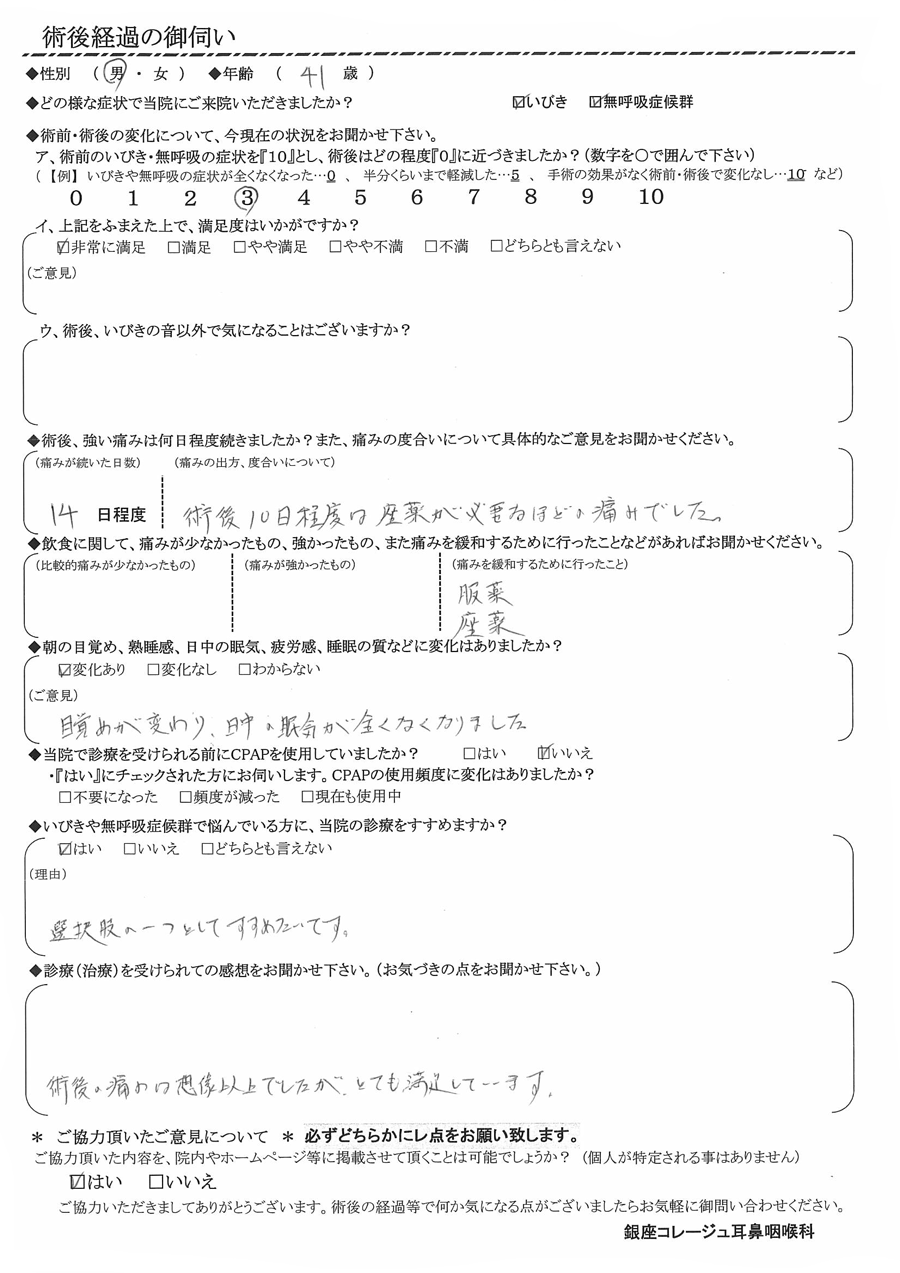 術後経過の御伺い
◆性別 ( 男 ・ 女 ) ◆年齢 ( 41 歳 )
◆どの様な症状で当院にご来院いただきましたか? ☑いびき ☑無呼吸症候群
◆術前・術後の変化について、今現在の状況をお聞かせ下さい。
ア、術前のいびき・無呼吸の症状を『10』とし、術後はどの程度『0』に近づきましたか?(数字を〇で囲んで下さい)
(【例】いびきや無呼吸の症状が全くなくなった…0 、 半分くらいまで軽減した…5 、 手術の効果がなく術前・術後で変化なし…10 など)
0 1 2 3 4 5 6 7 8 9 10
イ、上記をふまえた上で、満足度はいかがですか?
☑非常に満足 □満足 □やや満足 □やや不満 □不満 □どちらとも言えない
(ご意見)
ウ、術後、いびきの音以外で気になることはございますか?
◆術後、強い痛みは何日程度続きましたか?また、痛みの度合いについて具体的なご意見をお聞かせください。
(痛みが続いた日数) (痛みの出方、度合いについて)
14 日程度 術後10日程度は座薬が必要なほどの痛みでした。
◆飲食に関して、痛みが少なかったもの、強かったもの、また痛みを緩和するために行ったことなどがあればお聞かせください。
(比較的痛みが少なかったもの) (痛みが強かったもの) (痛みを緩和するために行ったこと)
服薬
座薬
◆朝の目覚め、熟睡感、日中の眠気、疲労感、睡眠の質などに変化はありましたか?
☑変化あり □変化なし □わからない
(ご意見)
目覚めが変わり、日中の眠気が全くなくなりました
◆当院で診療を受けられる前にCPAPを使用していましたか? □はい ☑いいえ
・『はい』にチェックされた方にお伺いします。CPAPの使用頻度に変化はありましたか?
□不要になった □頻度が減った □現在も使用中
◆いびきや無呼吸症候群で悩んでいる方に、当院の診療をすすめますか?
☑はい □いいえ □どちらとも言えない
(理由)
選択肢の一つとしてすすめたいです。
◆診療(治療)を受けられての感想をお聞かせ下さい。(お気づきの点をお聞かせ下さい。)
術後の痛みは想像以上でしたが、とても満足しています。
＊ ご協力頂いたご意見について ＊ 必ずどちらかにレ点をお願い致します。
ご協力頂いた内容を、院内やホームページ等に掲載させて頂くことは可能でしょうか? (個人が特定される事はありません)
☑はい □いいえ
ご協力いただきましてありがとうございます。術後の経過等で何か気になる点がございましたらお気軽に御問い合わせください。
銀座コレージュ耳鼻咽喉科